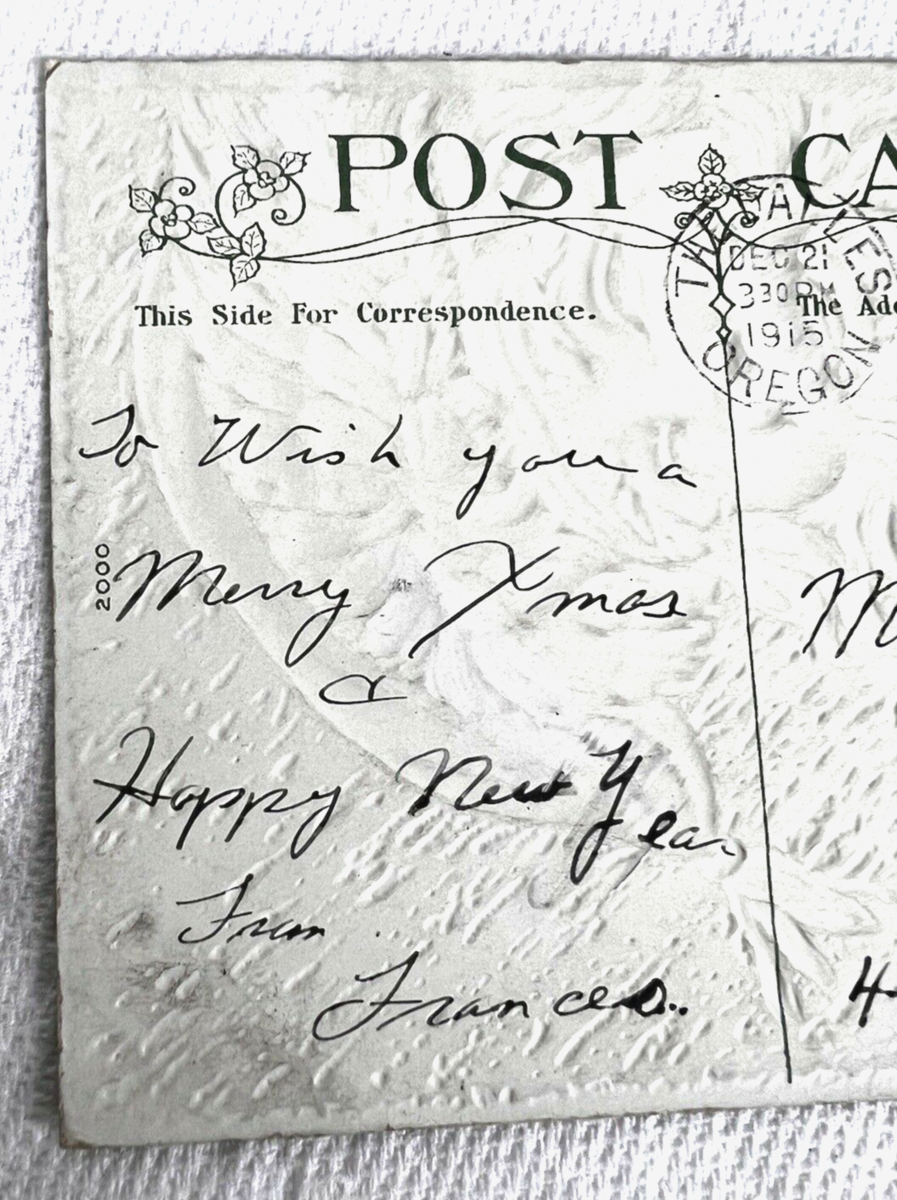 POST CA
THE DALLES
DEC 21
330 PM
1915
OREGON
This Side For Correspondence.
The Add
To Wish you a
2000
Merry Xmas
&
Happy New Year
From
Frances.
M
4